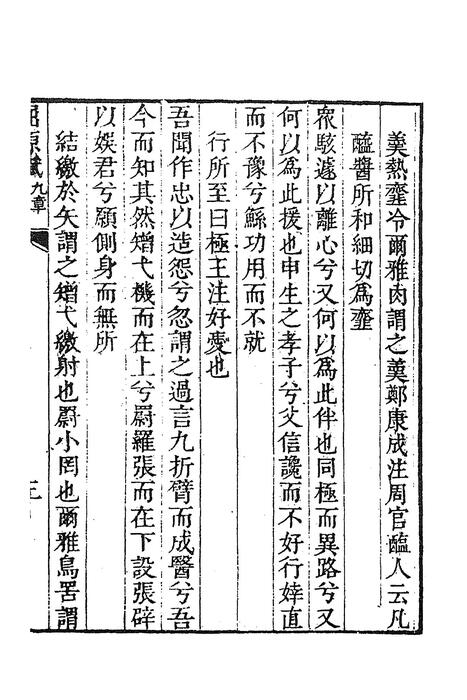 羹熱𩐋令爾雅肉謂之羹鄭康成注周官醢人云凡
醯醬所和細切爲𩐋
衆駭遽以離心兮又何以爲此伴也同極而異路兮又
何以爲此援也申生之孝子兮父信讒而不好行婞直
而不豫兮鯀功用而不就
行所至曰極王注好愛也
吾聞作忠以造怨兮忽謂之過言九折臂而成醫兮吾
今而知其然矰弋機而在上兮罻羅張而在下設張辟
以娛君兮願側身而無所
結繳於矢謂之矰弋繳射也罻小罔也爾雅鳥罟謂
屈原賦 九章
三